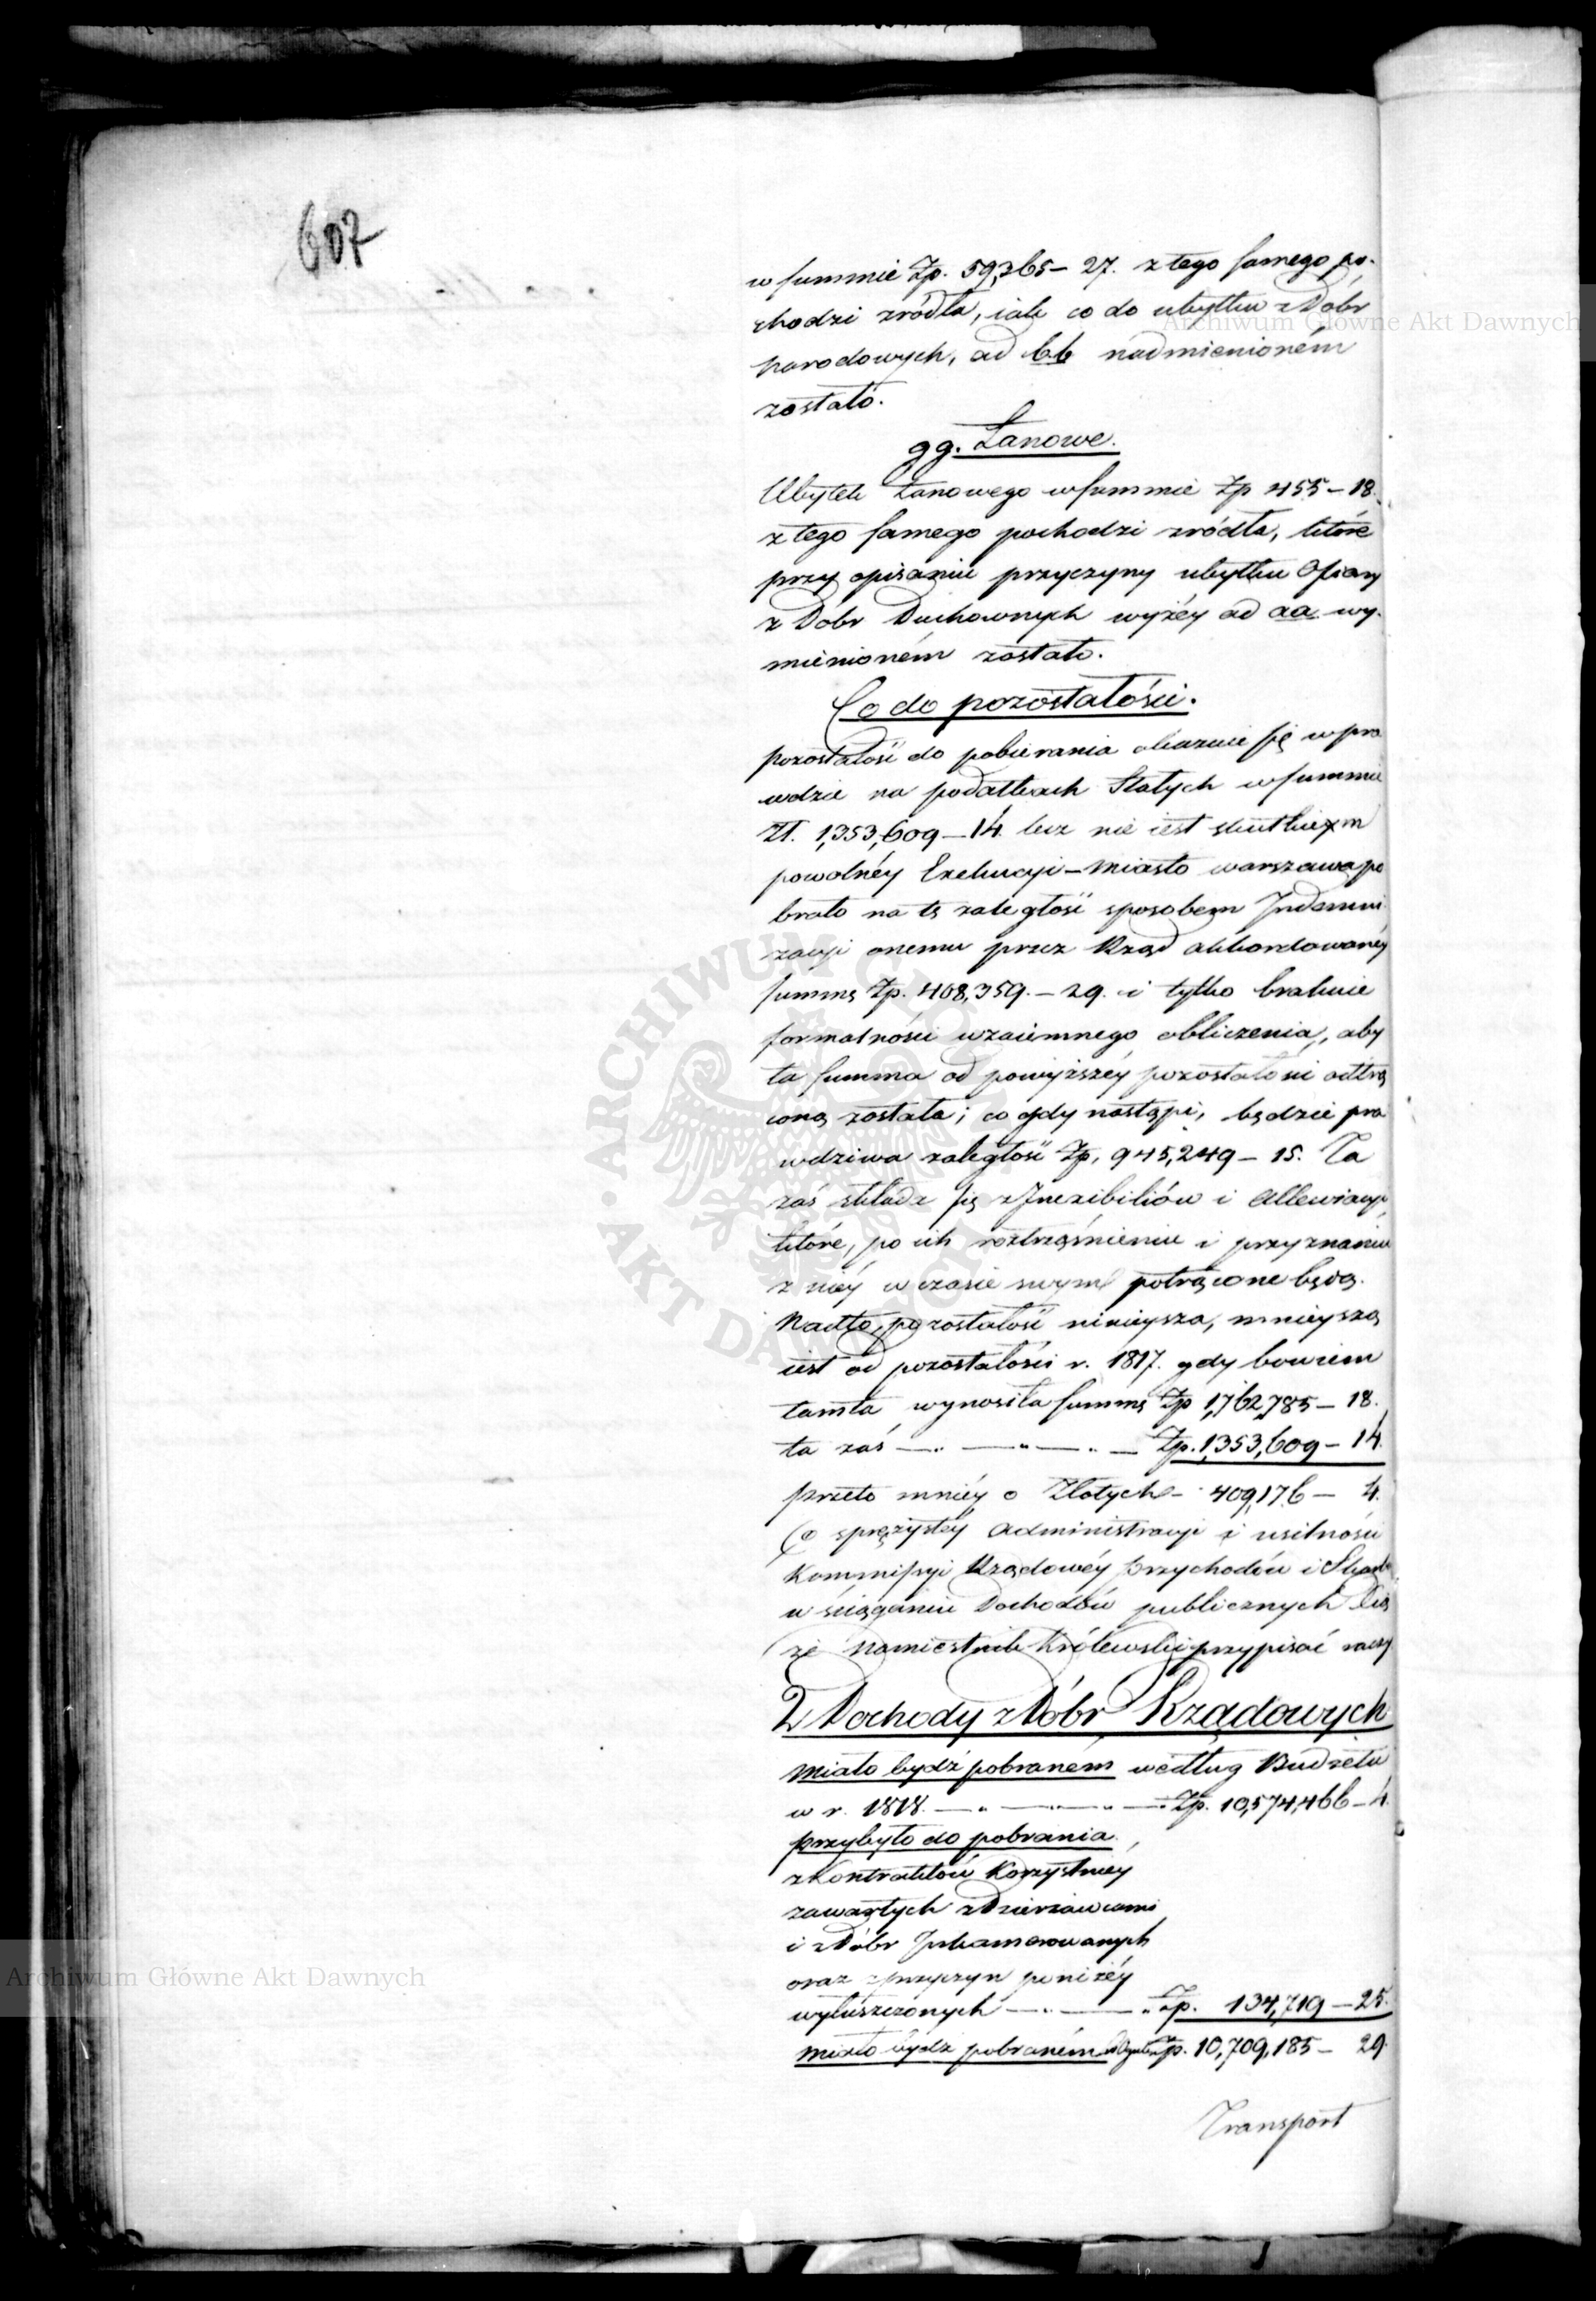 607
w summie Zp. 59,365 – 27. z tego samego po-
chodzi zródła, iak co do ubytku z Dóbr
narodowych, ad bb nadmienioném
zostało.
gg. Łanowe.
Ubytek Łanowego w summie Zp 455 – 18.
z tego samego pochodzi zródła, które
przy opisaniu przyczyny ubytku Ofiary
z Dóbr Duchownych wyżéy ad aa. wy-
mienioném zostało.
Co do pozostałości.
Pozostałość do pobierania okazuie się wpra
wdzie na podatkach Stałych w summie
Zł. 1,353,609 – 14. lecz nie iest skutkiem
powolnéy Exekucyi – Miasto Warszawa po
brało na tę zaległość sposobem Indemni
zacyi onemu przez Rząd akkordowanéy
summę Zp. 408,359. – 29. i tylko brakuie
formalności wzaiemnego obliczenia, aby
ta summa od powyższéy pozostałości odtrą
coną została; co gdy nastąpi, będzie pra
wdziwa zaległość Zp. 945,249 – 15. Ta
zaś składa się z Inexibiliów i Allewiacyi,
które, po ich roztrząśnieniu i przyznaniu
z niéy w czasie swym potrącone będą.
Nadto, pozostałość ninieysza, mnieyszą
iest od pozostałości r. 1817. gdy bowiem
tamta wynosiła summę Zp 1,762,785 – 18.
ta zaś — " — " — " — Zp. 1,353,609 – 14.
przeto mniéy o Złotych – 409,176 – 4.
Co sprężystéy Administracyi i usilności
Kommissyi Rządowéy Przychodów i Skarbu
w ściąganiu Dochodów publicznych Xią
żę Namiestnik Królewski przypisać raczy
2 Dochody z Dóbr Rządowych
Miało bydź pobraném według Budżetu
w r. 1818. — " — " — Zp. 10,574,466 – 4.
Przybyło do pobrania.
z Kontraktów Korzystniéy
zawartych z Dzierżawcami
i z Dóbr Inkamerowanych
oraz z przyczyn poniżéy
wyłuszczonych — " — " Zp. 134,719 – 25.
Miało bydź pobraném Zp. 10,709,185 – 29.
Transport
Archiwum Główne Akt Dawnych
Archiwum Główne Akt Dawnych
ARCHIWUM GŁÓWNE AKT DAWNYCH